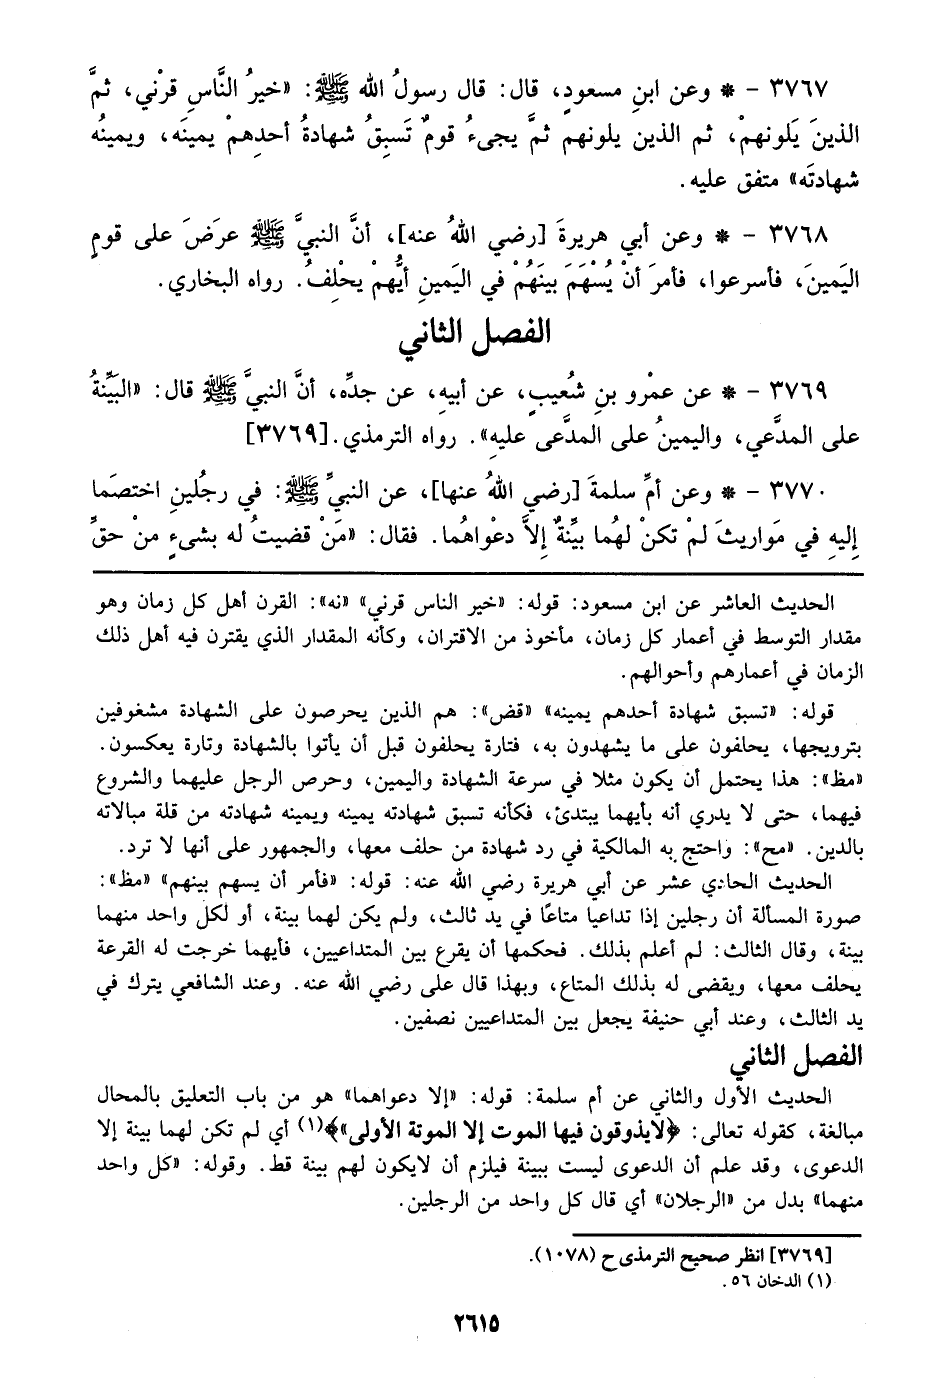 ٣٧٦٧ – * وعن ابنِ مسعودٍ، قال: قال رسولُ الله ﷺ: «خيرُ النَّاسِ قرْني، ثمَّ
الذينَ يَلونهمْ، ثم الذين يلونهم ثمَّ يجيءُ قومٌ تَسبِقُ شهادةُ أحدِهمْ يمينَه، ويمينُه
شهادتَه» متفق عليه.
٣٧٦٨ – * وعن أبي هريرةَ [رضي اللهُ عنه]، أنَّ النبيَّ ﷺ عرَضَ على قومٍ
اليَمينَ، فأسرعوا، فأمرَ أنْ يُسْهَمَ بينَهُمْ في اليَمينِ أيُّهمْ يحْلِفُ. رواه البخاري.
الفصل الثاني
٣٧٦٩ – * عن عمْرو بنِ شُعيبٍ، عن أبيهِ، عن جدِّه، أنَّ النبيَّ ﷺ قال: «البَيِّنةُ
على المدَّعي، واليمينُ على المدَّعى عليهِ». رواه الترمذي. [٣٧٦٩]
٣٧٧٠ – * وعن أمِّ سلمةَ [رضي اللهُ عنها]، عن النبيِّ ﷺ: في رجُلينِ اختصَما
إليهِ في مَواريثَ لمْ تكنْ لهُما بيِّنةٌ إلاَّ دعْواهُما. فقال: «مَنْ قضيتُ له بشيءٍ منْ حقِّ
الحديث العاشر عن ابن مسعود: قوله: «خير الناس قرني» «نه»: القرن أهل كل زمان وهو
مقدار التوسط في أعمار كل زمان، مأخوذ من الاقتران، وكأنه المقدار الذي يقترن فيه أهل ذلك
الزمان في أعمارهم وأحوالهم.
قوله: «تسبق شهادة أحدهم يمينه» «قض»: هم الذين يحرصون على الشهادة مشغوفين
بترويجها، يحلفون على ما يشهدون به، فتارة يحلفون قبل أن يأتوا بالشهادة وتارة يعكسون.
«مظ»: هذا يحتمل أن يكون مثلا في سرعة الشهادة واليمين، وحرص الرجل عليهما والشروع
فيهما، حتى لا يدري أنه بأيهما يبتدئ، فكأنه تسبق شهادته يمينه ويمينه شهادته من قلة مبالاته
بالدين. «مح»: واحتج به المالكية في رد شهادة من حلف معها، والجمهور على أنها لا ترد.
الحديث الحادي عشر عن أبي هريرة رضي الله عنه: قوله: «فأمر أن يسهم بينهم» «مظ»:
صورة المسألة أن رجلين إذا تداعيا متاعًا في يد ثالث، ولم يكن لهما بينة، أو لكل واحد منهما
بينة، وقال الثالث: لم أعلم بذلك. فحكمها أن يقرع بين المتداعيين، فأيهما خرجت له القرعة
يحلف معها، ويقضى له بذلك المتاع، وبهذا قال على رضي الله عنه. وعند الشافعي يترك في
يد الثالث، وعند أبي حنيفة يجعل بين المتداعيين نصفين.
الفصل الثاني
الحديث الأول والثاني عن أم سلمة: قوله: «إلا دعواهما» هو من باب التعليق بالمحال
مبالغة، كقوله تعالى: ﴿لايذوقون فيها الموت إلا الموتة الأولى»﴾(١) أي لم تكن لهما بينة إلا
الدعوى، وقد علم أن الدعوى ليست ببينة فيلزم أن لايكون لهم بينة قط. وقوله: «كل واحد
منهما» بدل من «الرجلان» أي قال كل واحد من الرجلين.
[٣٧٦٩] انظر صحيح الترمذى ح (١٠٧٨).
(١) الدخان ٥٦.
٢٦١٥